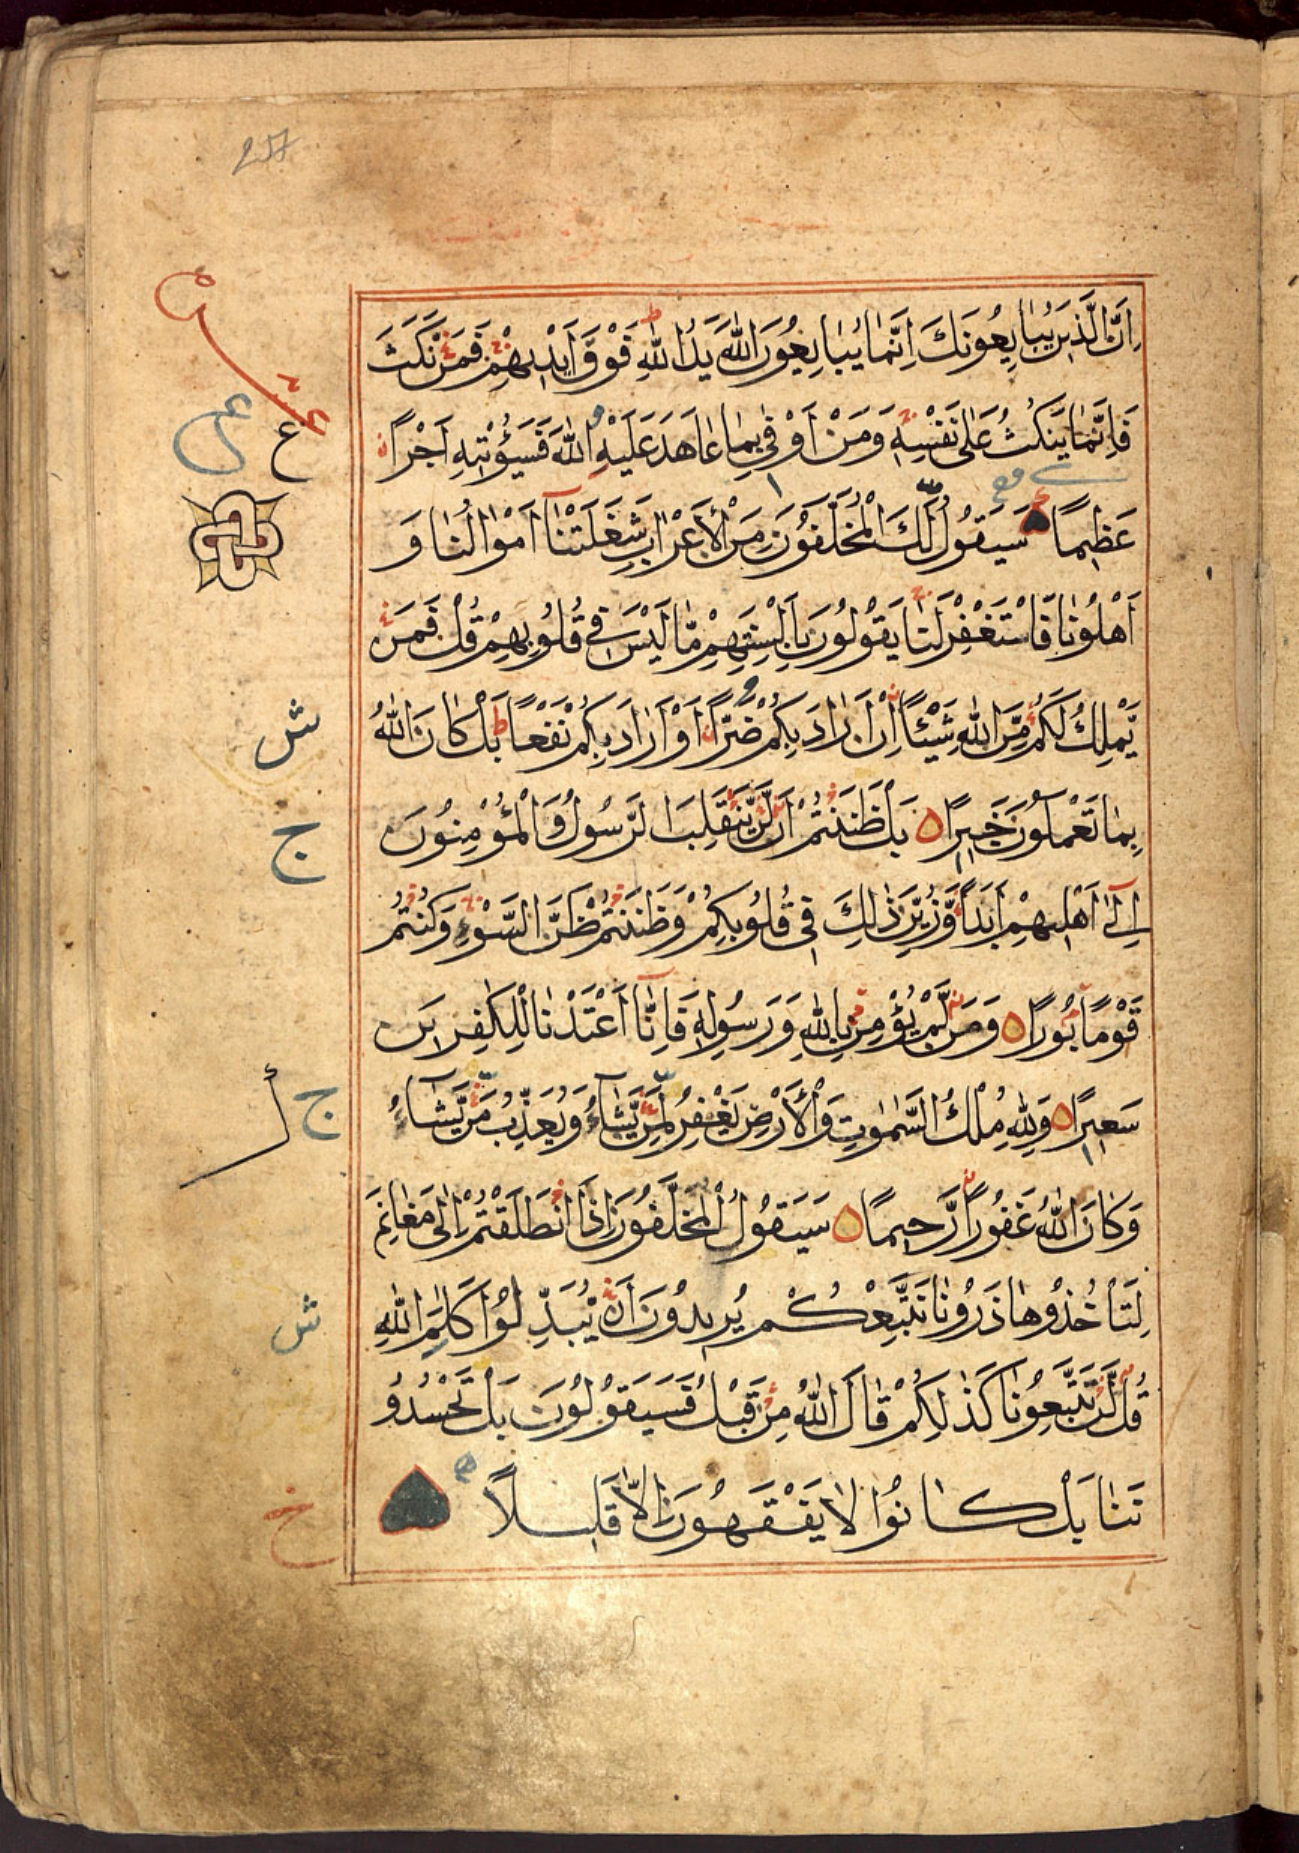 257
اِنَّ الَّذِيْنَ يُبَايِعُوْنَكَ اِنَّمَا يُبَايِعُوْنَ اللّٰهَ يَدُ اللّٰهِ فَوْقَ اَيْدِيْهِمْ فَمَنْ نَّكَثَ
فَاِنَّمَا يَنْكُثُ عَلٰى نَفْسِهٖ وَمَنْ اَوْفٰى بِمَا عَاهَدَ عَلَيْهُ اللّٰهَ فَسَيُؤْتِيْهِ اَجْرًا
عَظِيْمًا سَيَقُوْلُ لَكَ الْمُخَلَّفُوْنَ مِنَ الْاَعْرَابِ شَغَلَتْنَا اَمْوَالُنَا وَ
اَهْلُوْنَا فَاسْتَغْفِرْ لَنَا يَقُوْلُوْنَ بِاَلْسِنَتِهِمْ مَّا لَيْسَ فِيْ قُلُوْبِهِمْ قُلْ فَمَنْ
يَّمْلِكُ لَكُمْ مِّنَ اللّٰهِ شَيْئًا اِنْ اَرَادَ بِكُمْ ضَرًّا اَوْ اَرَادَ بِكُمْ نَفْعًا بَلْ كَانَ اللّٰهُ
بِمَا تَعْمَلُوْنَ خَبِيْرًا بَلْ ظَنَنْتُمْ اَنْ لَّنْ يَّنْقَلِبَ الرَّسُوْلُ وَالْمُؤْمِنُوْنَ
اِلٰى اَهْلِيْهِمْ اَبَدًا وَّزُيِّنَ ذٰلِكَ فِيْ قُلُوْبِكُمْ وَظَنَنْتُمْ ظَنَّ السَّوْءِ وَكُنْتُمْ
قَوْمًا بُوْرًا وَمَنْ لَّمْ يُؤْمِنْ بِاللّٰهِ وَرَسُوْلِهٖ فَاِنَّا اَعْتَدْنَا لِلْكٰفِرِيْنَ
سَعِيْرًا وَلِلّٰهِ مُلْكُ السَّمٰوٰتِ وَالْاَرْضِ يَغْفِرُ لِمَنْ يَّشَاءُ وَيُعَذِّبُ مَنْ يَّشَاءُ
وَكَانَ اللّٰهُ غَفُوْرًا رَّحِيْمًا سَيَقُوْلُ الْمُخَلَّفُوْنَ اِذَا انْطَلَقْتُمْ اِلٰى مَغَانِمَ
لِتَاْخُذُوْهَا ذَرُوْنَا نَتَّبِعْكُمْ يُرِيْدُوْنَ اَنْ يُّبَدِّلُوْا كَلٰمَ اللّٰهِ
قُلْ لَّنْ تَتَّبِعُوْنَا كَذٰلِكُمْ قَالَ اللّٰهُ مِنْ قَبْلُ فَسَيَقُوْلُوْنَ بَلْ تَحْسُدُوْ
نَنَا بَلْ كَانُوْا لَا يَفْقَهُوْنَ اِلَّا قَلِيْلًا
ع
ش
ج
ج
ش
خ